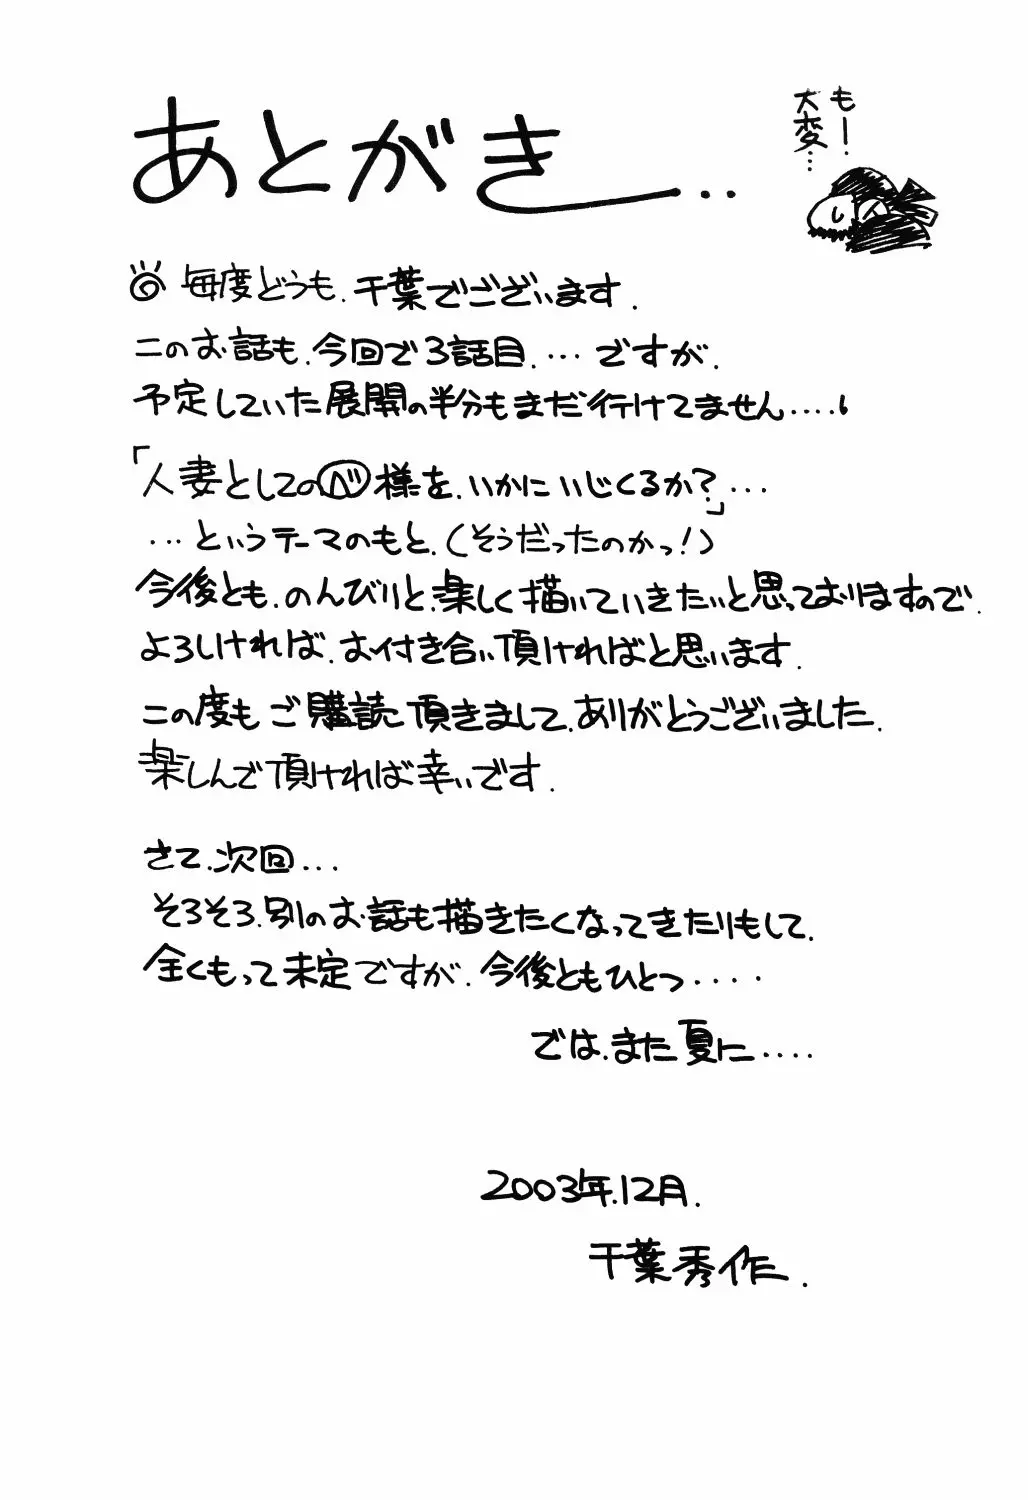 あとがき...
もー
大変...
毎度どうも.千葉でございます.
このお話も.今回で3話目....ですが.
予定していた展開の半分もまだ行けてません....
「人妻としてのⒷ様を.いかにいじくるか?...」
...というテーマのもと.(そうだったのかっ!)
今後とも.のんびりと.楽しく描いていきたいと思っておりますので.
よろしければ.お付き合い頂ければと思います.
この度もご購読頂きまして.ありがとうございました.
楽しんで頂ければ幸いです.
さて.次回...
そろそろ.別のお話も描きたくなってきたりもして.
全くもって未定ですが.今後ともひとつ....
では.また夏に....
2003年.12月.
千葉秀作.